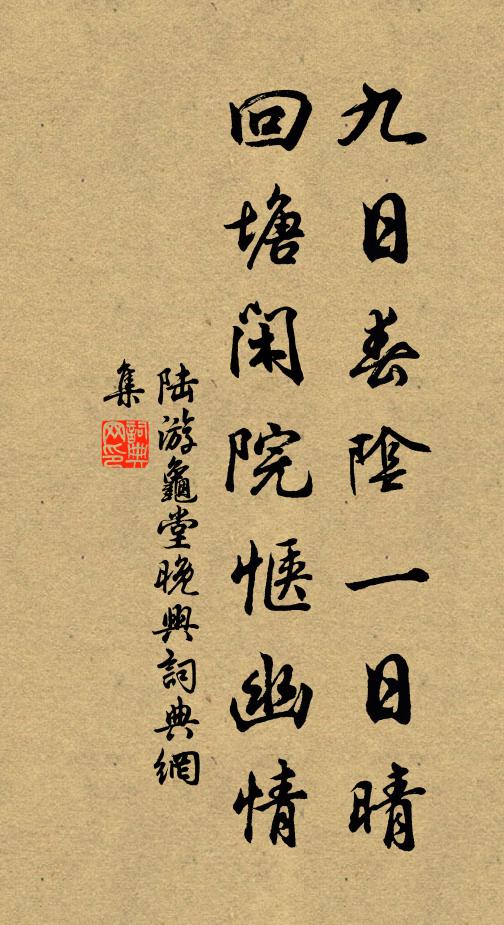 九日春陰一日晴
回塘閑院愜幽情
陆游龜堂晚興詞典網
集
詞典
网印